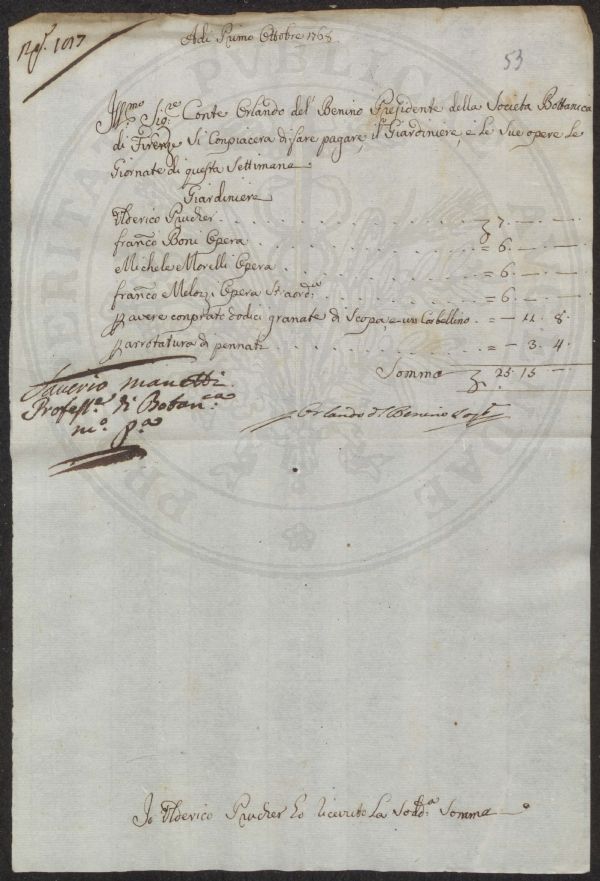 Nº. 1017
Adi Primo Ottobre 1768
53
Ill.mo Sig.re Conte Orlando del Benino Presidente della Società Bottanica
di Firenze Si Conpiacerà di fare pagare, il Giardiniere, e le Sue opere le
Giornate di questa Settimana
Giardiniere
Ulderico Prucher . . . 7. — . —
Franc.o Boni Opera . . . = 6. — . —
Michele Morelli Opera . . . = 6. — . —
Franc.o Melozi Opera Straord.a . . . = 6. — . —
P avere conprato dodici granate di Scopa, e un Corbellino . = — 11. 8.
P arrotatura di pennati . . . = — 3. 4.
Somma 25. 15 —
Saverio Manetti
Profess.e di Botan.ca
m.o p.a
Orlando del Benino
Io Ulderico Prucher ho ricevuto La Sodd.a Somma
PUBLICAE